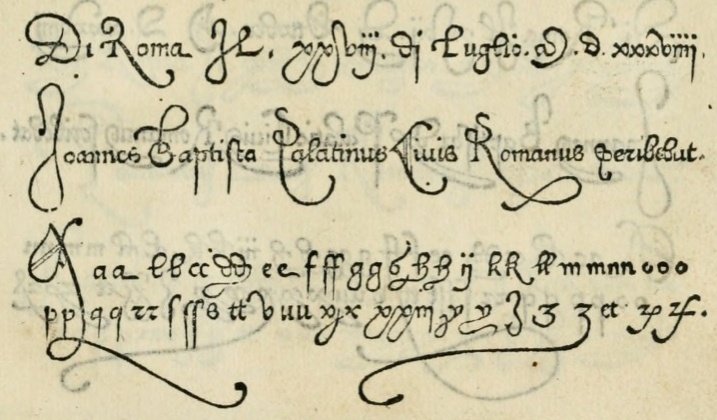 Di Roma Il. xxviij. di Luglio. M. d. xxxviiij.
Ioannes Baptista Palatinus Ciuis Romanus Scribebat.
A aa bb cc dd ee f ff gg g hh ij kk ll m m nn ooo
pp qq rr ſ ſſ s tt v uu x x y y Z 3 3 et